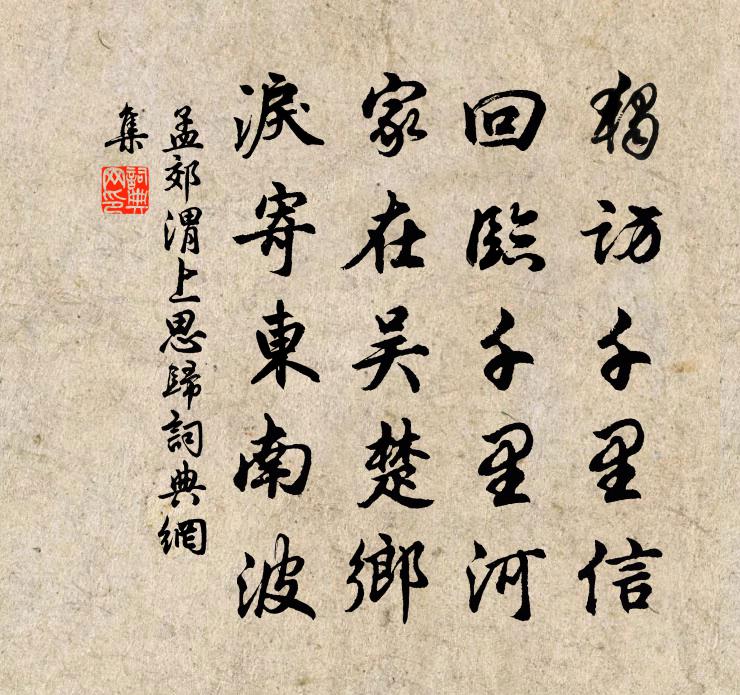 獨訪千里信
回臨千里河
家在吴楚鄉
淚寄東南波
孟郊渭上思歸詞典網
集
詞典
网印